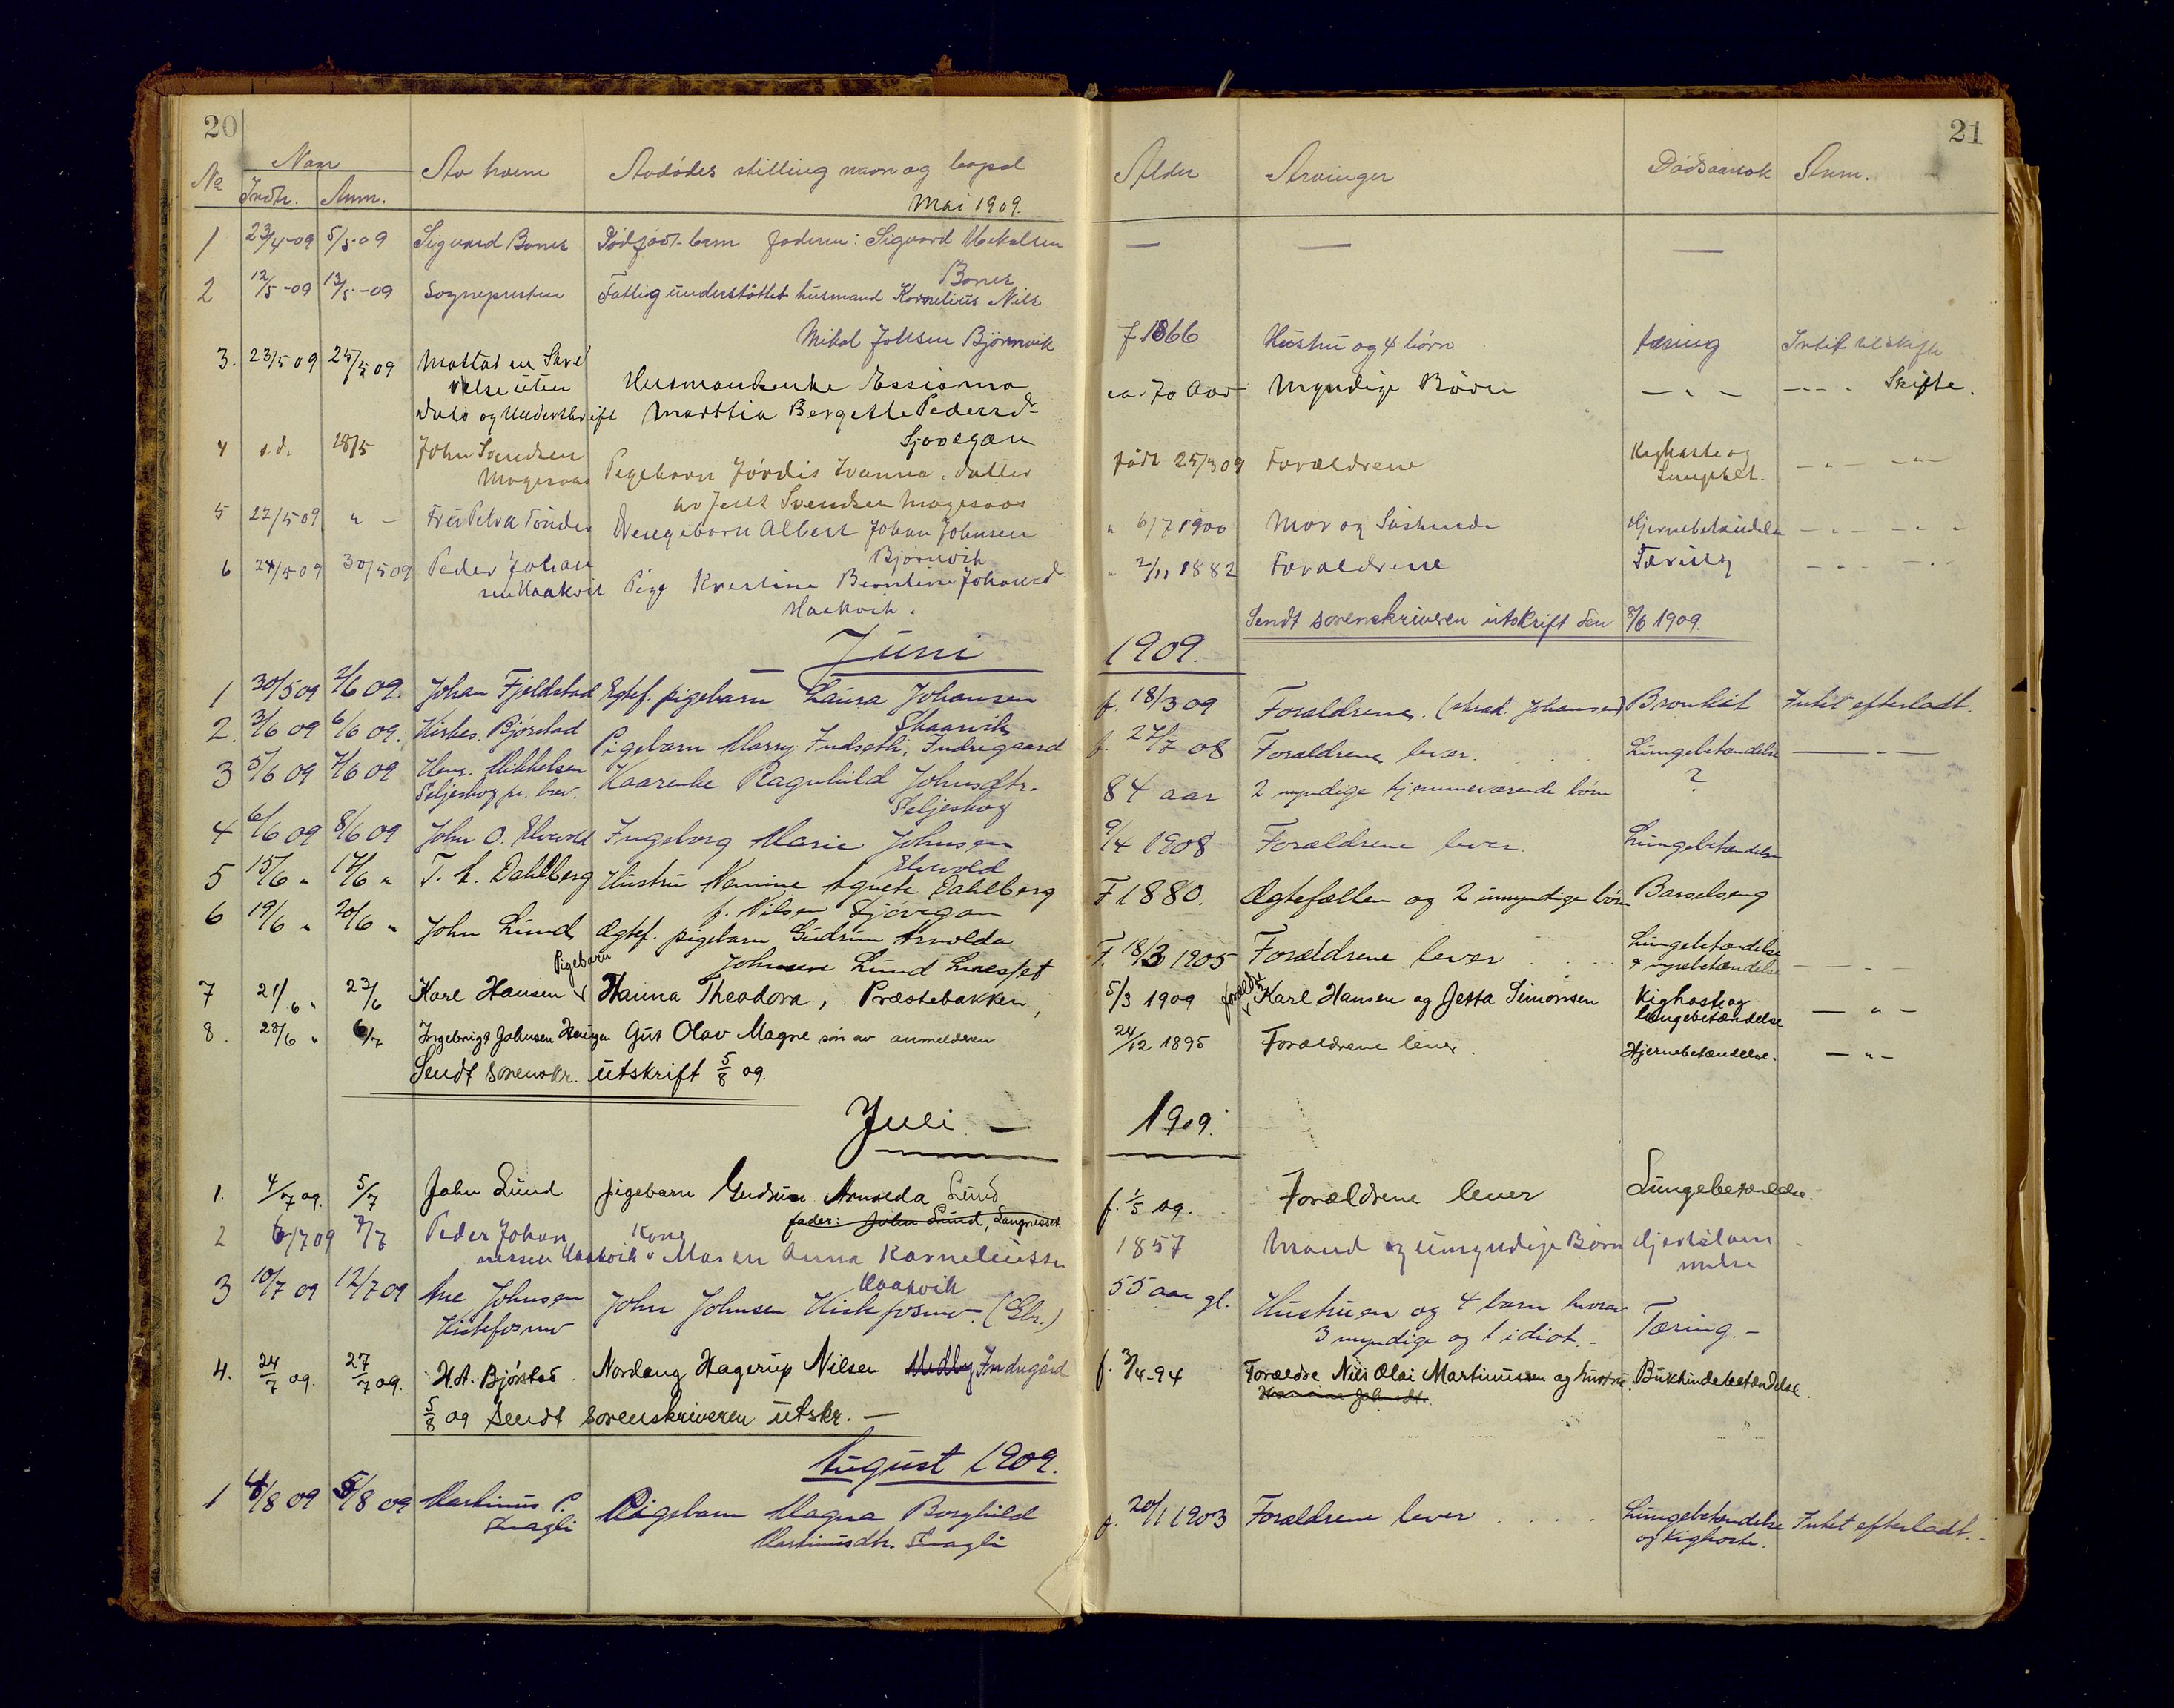 20
21
No Naar Av hvem Avdødes stilling navn og bopæl Alder Arvinger Dødsaarsak Anm.
Indtr. Anm.
Mai 1909.
1 23/4-09 5/5-09 Sigvard Bones Dødfødt barn faderen: Sigvard Mekalsen — — —
Bones
2 12/5-09 13/5-09 Sognepresten Fattig understøttet husmand Kornelius Nils
Mikal Johsen Bjørnvik f 1866 Hustru og 4 børn tæring Intet til skifte
3. 23/5 09 25/5 09 Mottat en Skri
velse uten Husmandsenke Essianna ca. 70 Aar Myndige Børn — " — — " Skifte.
dato og Underskrift Marthia Bergethe Pedersd.
Sjøvegan
4 s.d. 28/5 John Svendsen
Mogesaas Pigebarn Jórdis Ivanna, datter født 25/3 09 Forældrene Kighoste og — " — — " —
av Jentz Svendsen Mogesaas
5 27/5 09 " — Fru Petra Tönder Drengebarn Albert Johan Johnsen " 6/7 1900 Mor og Søskende Hjernebetændelse — " — — " —
Bjørnvik
6 24/5 09 30/5 09 Peder Johan
sen Haakvik Pige Kristine Berntine Johansd. " 2/11 1882 Forældrene Tæring — " — — " —
Haakvik.
Sendt sorenskriveren utskrift den 8/6 1909.
Juni 1909.
1 30/5 09 2/6 09. Johan Fjeldstad Egtef. pigebarn Laura Johansen f. 18/3 09 Forældrene. (Johansen) Bronkit Intet efterladt.
Skaarvik
2. 3/6 09 6/6 09. Kirkes. Bjørstad Pigebarn Marry Indseth, Indregaard f. 27/7 08 Forældrene lever. Lungebetændelse — " —
3 5/6 09 7/6 09 Hans. Mikkelsen Kaarenke Ragnhild Johnsdtr. 84 aar 2 myndige hjemmeværende børn ?
Seljeskog pr. brev. Seljeskog
4 6/6 09 8/6 09 John O. Elvevold Ingeborg Marie Johnsen 9/4 1908 Forældrene lever. Lungebetændelse
Elvevold
5 15/6 " 17/6 " T. A. Dahlberg Hustru Namine Agnete Dahlberg F 1880. Ægtefællen og 2 umyndige børn Barselseng
f. Nilsen Sjøvegan
6 19/6 " 20/6 " John Lund Ægtef. pigebarn Gudrun Arnolda
Johnsen Lund F. 18/3 1905 Forældrene lever Lungebetændelse
& nyrebetændelse — " —
Pigebarn
7 21/6 " 23/6 Karl Hansen Hanna Theodora, Præstebakken, 5/3 1909 forældre Karl Hansen og Jetta Simonsen Kighoste og
lungebetændelse — " —
8. 28/6 " 6/7 Ingebrigt Johnsen Haugen Gut Olav Magne søn av anmelderen 24/12 1895 Forældrene lever. Hjernebetændelse. — " —
Sendt sorenskr. utskrift 5/8 09.
Juli — 1909.
1. 4/7 09. 5/7 John Lund pigebarn Gudrun Arnolda Lund f. 1/5 09. Forældrene lever Lungebetændelse.
fader: John Lund, Langnesset
2 6/7 09 7/7 Peder Johan
nessen Haakvik Kone Maren Anna Korneliussen 1857 Mand og umyndige Børn Hjertelam
melse
Haakvik
3 10/7 09 12/7 09 Ane Johnsen John Johnsen Kistefosmo. (Gbr.) 55 aar gl. Hustruen og 4 barn hvorav
Kistefosmo 3 myndige og 1 idiot. - Tæring. -
4. 24/7 09. 27/7 09. H.A. Bjørstad Nordeng Hagerup Nilsen Indregård f. 3/4-94 Forældre Nils Olai Martinussen og hustru Bukhindebetændelse.
Hanna Johnsdtr.
5/8 09 Sendt sorenskriveren utskr. —
August 1909.
1 4/8 09 5/8 09 Martinus P. Pigebarn Magna Borghild f. 20/1 1903 Forældrene lever Lungebetændelse Intet efterladt. -
Martinusdtr. og Kighoste.